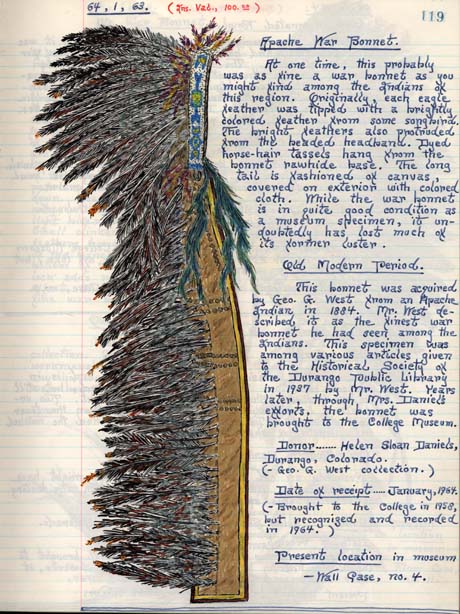 64, 1, 63. (Ins. Val., 100.00)
119
Apache War Bonnet.
At one time, this probably
was as fine a war bonnet as you
might find among the Indians of
this region. Originally, each eagle
feather was tipped with a brightly
colored feather from some songbird.
The bright feathers also protruded
from the beaded headband. Dyed
horse-hair tassels hang from the
bonnet rawhide base. The long
tail is fashioned of canvas,
covered on exterior with colored
cloth. While the war bonnet
is in quite good condition as
a museum specimen, it un-
doubtedly has lost much of
its former luster.
Old Modern Period.
This bonnet was acquired
by Geo. G. West from an Apache
Indian in 1884. Mr. West de-
scribed it as the finest war
bonnet he had seen among the
Indians. This specimen was
among various articles given
to the Historical Society of
the Durango Public Library
in 1937 by Mr. West. Years
later, through Mrs. Daniels
efforts, the bonnet was
brought to the College Museum.
Donor....... Helen Sloan Daniels,
Durango, Colorado.
(- Geo. G. West collection.)
Date of receipt ..... January, 1964.
(- Brought to the College in 1958,
but recognized and recorded
in 1964.)
Present location in museum
— Wall Case, no. 4.